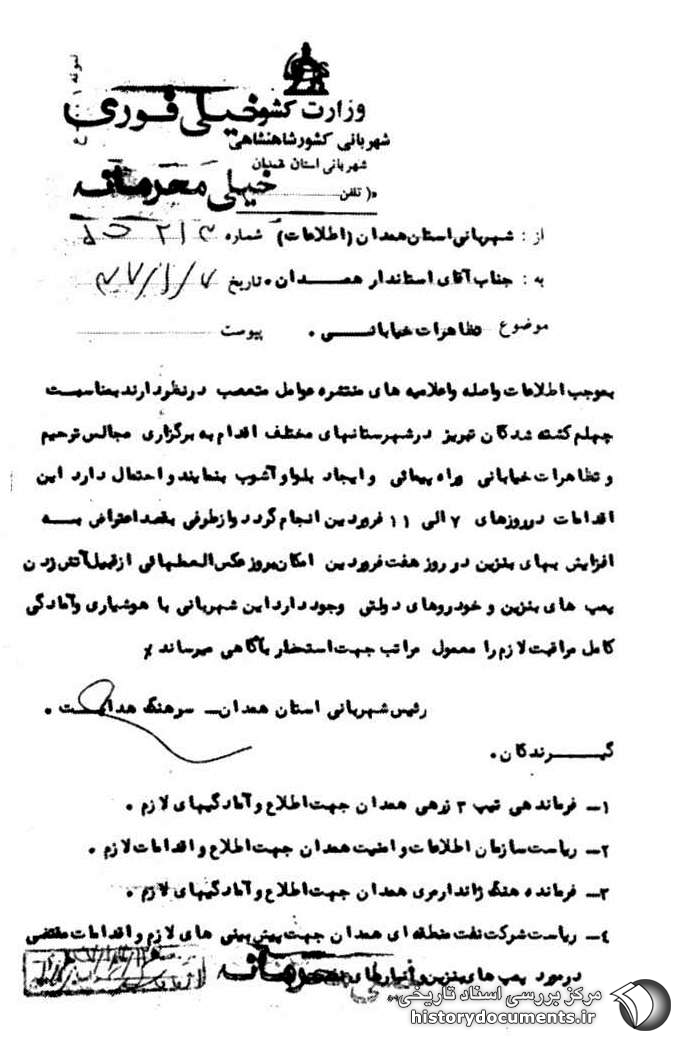 نمونه
وزارت کشور
خیلی فوری
شهربانی کشور شاهنشاهی
شهربانی استان همدان
خیلی محرمانه
تلفن
از : شهربانی استان همدان (اطلاعات) شماره
به : جناب آقای استاندار همدان . تاریخ ۳۷/۱/۷
موضوع تظاهرات خیابانی . پیوست
بموجب اطلاعات واصله و اعلامیه های منتشره عوامل متعصب در نظر دارند بمناسبت
چهلم کشته شدگان تبریز در شهرستانهای مختلف اقدام به برگزاری مجالس ترحیم
و تظاهرات خیابانی و راه پیمائی و ایجاد بلوا و آشوب بنمایند و احتمال دارد این
اقدامات در روزهای ۷ الی ۱۱ فروردین انجام گردد و از طرفی بقصد اعتراض بــه
افزایش بهای بنزین در روز هفت فروردین امکان بروز عکس العملهائی از قبیل آتش زدن
پمپ های بنزین و خودروهای دولتی وجود دارد این شهربانی با هوشیاری و آمادگی
کامل مراقبت لازم را معمول مراتب جهت استحضار بآگاهی میرساند ٪
رئیس شهربانی استان همدان ــ سرهنگ هدایت .
گیــرندگان .
۱ــ فرماندهی تیپ ۳ زرهی همدان جهت اطلاع و آمادگیهای لازم .
۲ــ ریاست سازمان اطلاعات و امنیت همدان جهت اطلاع و اقدامات لازم .
۳ــ فرمانده هنگ ژاندارمری همدان جهت اطلاع و آمادگیهای لازم .
۴ــ ریاست شرکت نفت منطقه ای همدان جهت پیش بینی های لازم و اقدامات مقتضی
در مورد پمپ های بنزین و انبارهای
خیلی محرمانه
مرکز بررسی اسناد تاریخی
historydocuments.ir